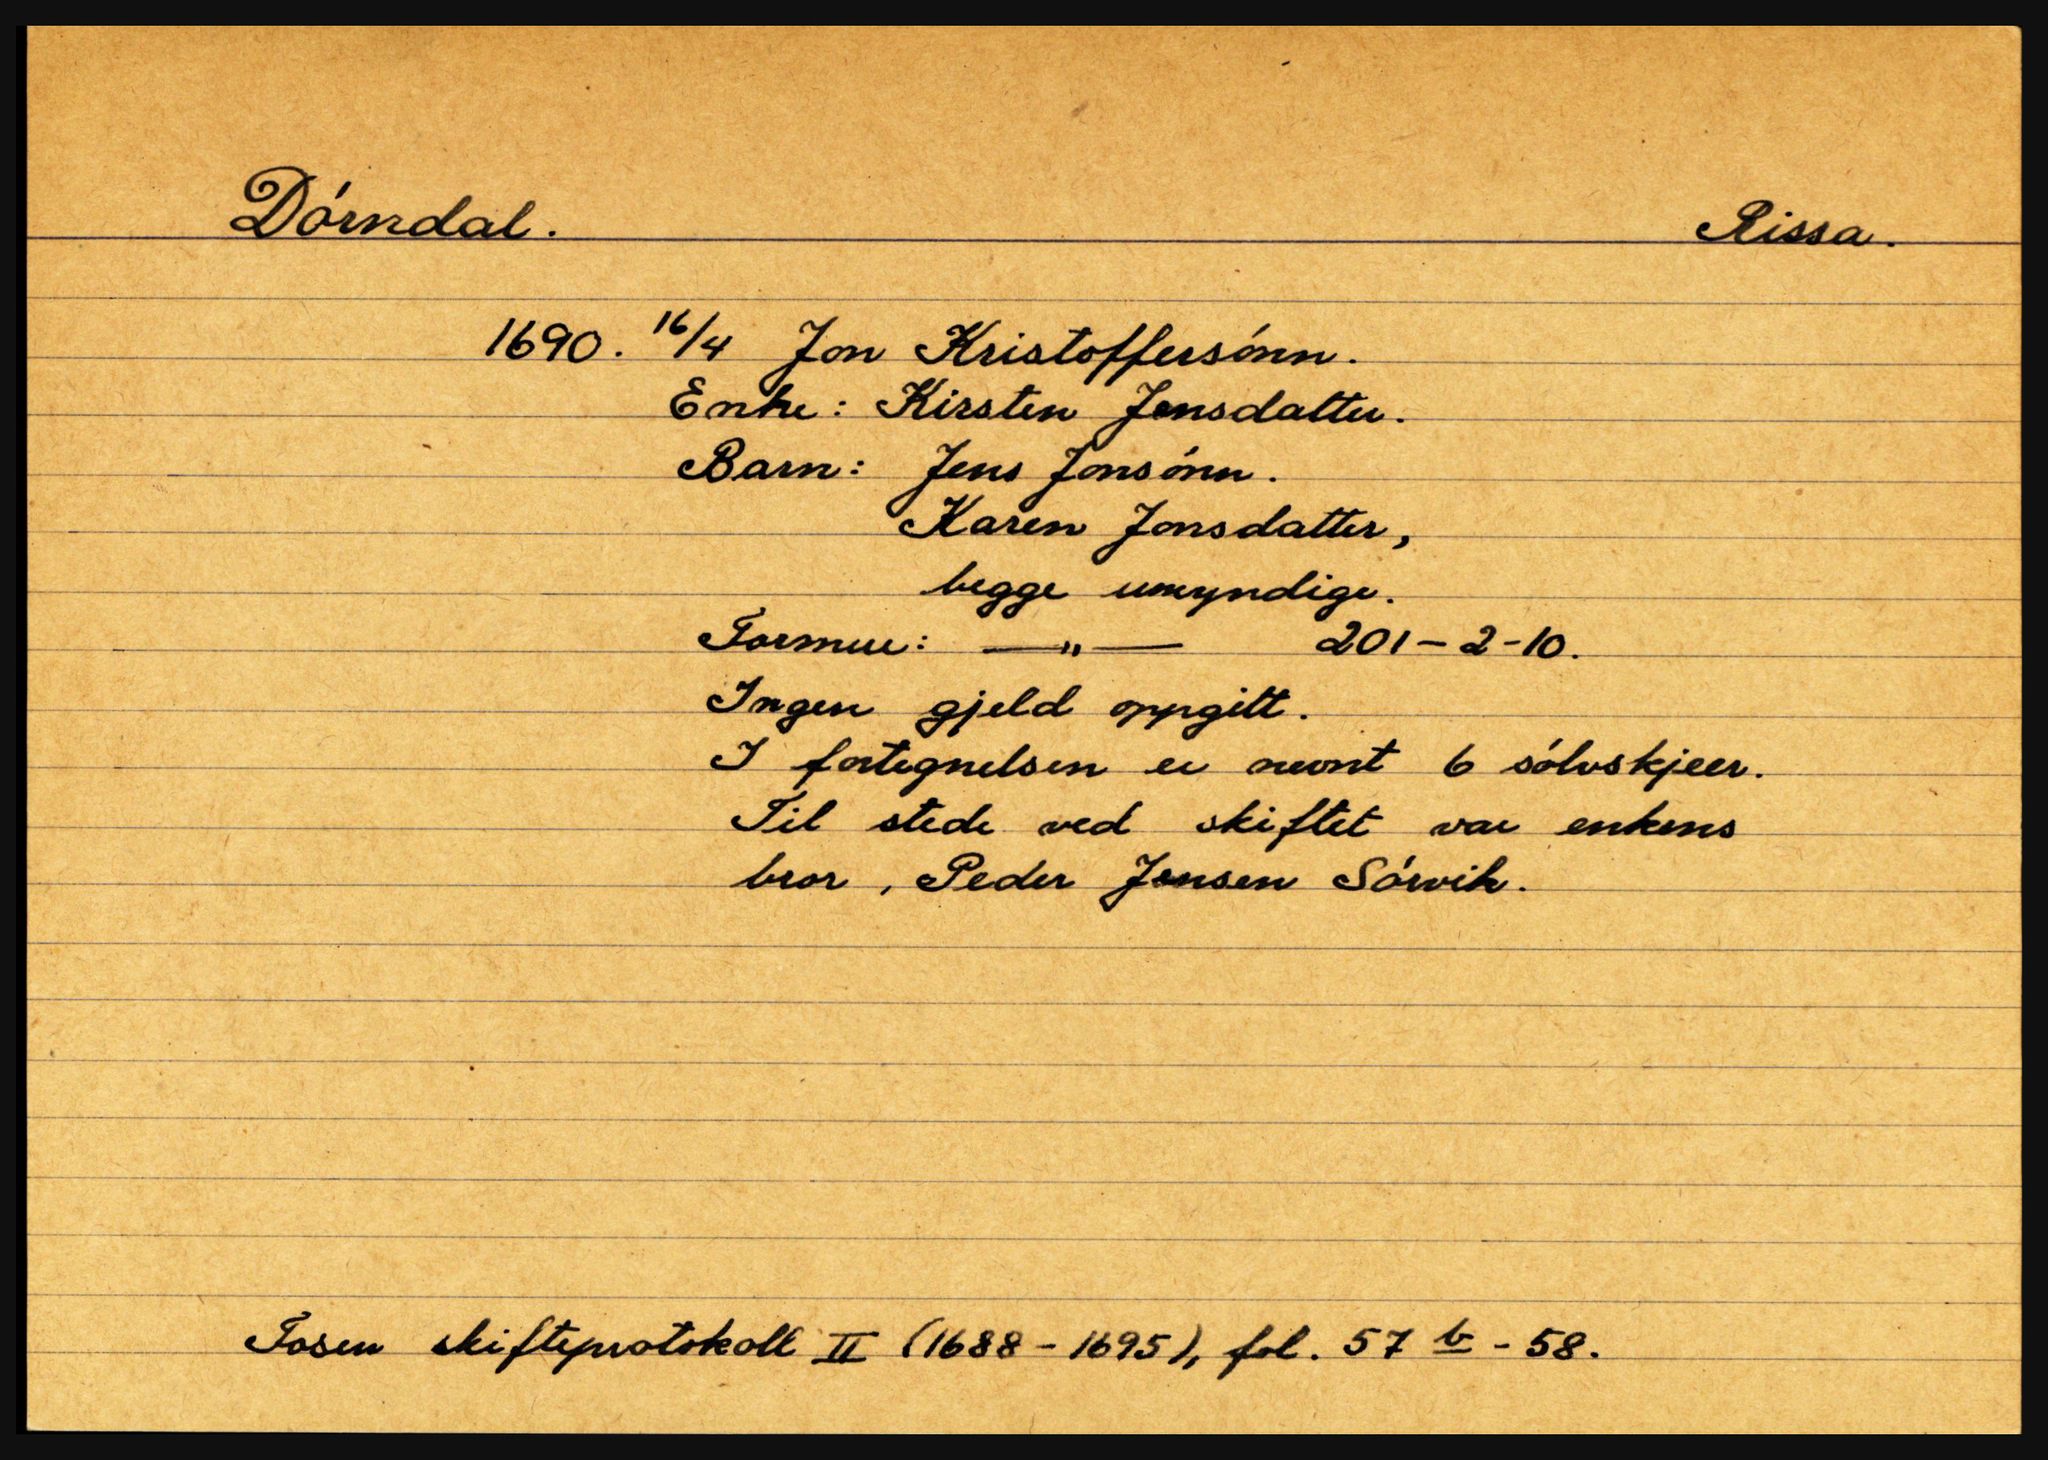 Dórndal. Rissa.
1690. 16/4 Jon Kristoffersónn.
Enke: Kirsten Jensdatter.
Barn: Jens Jonsónn.
Karen Jonsdatter,
begge umyndige.
Formue: —„— 201-2-10.
Ingen gjeld oppgitt.
I fortegnelsen er nevnt 6 sólvskjeer.
Til stede ved skiftet var enkens
bror, Peder Jensen Sórvik.
Fosen skifteprotokoll II (1688-1695), fol. 57 b - 58.